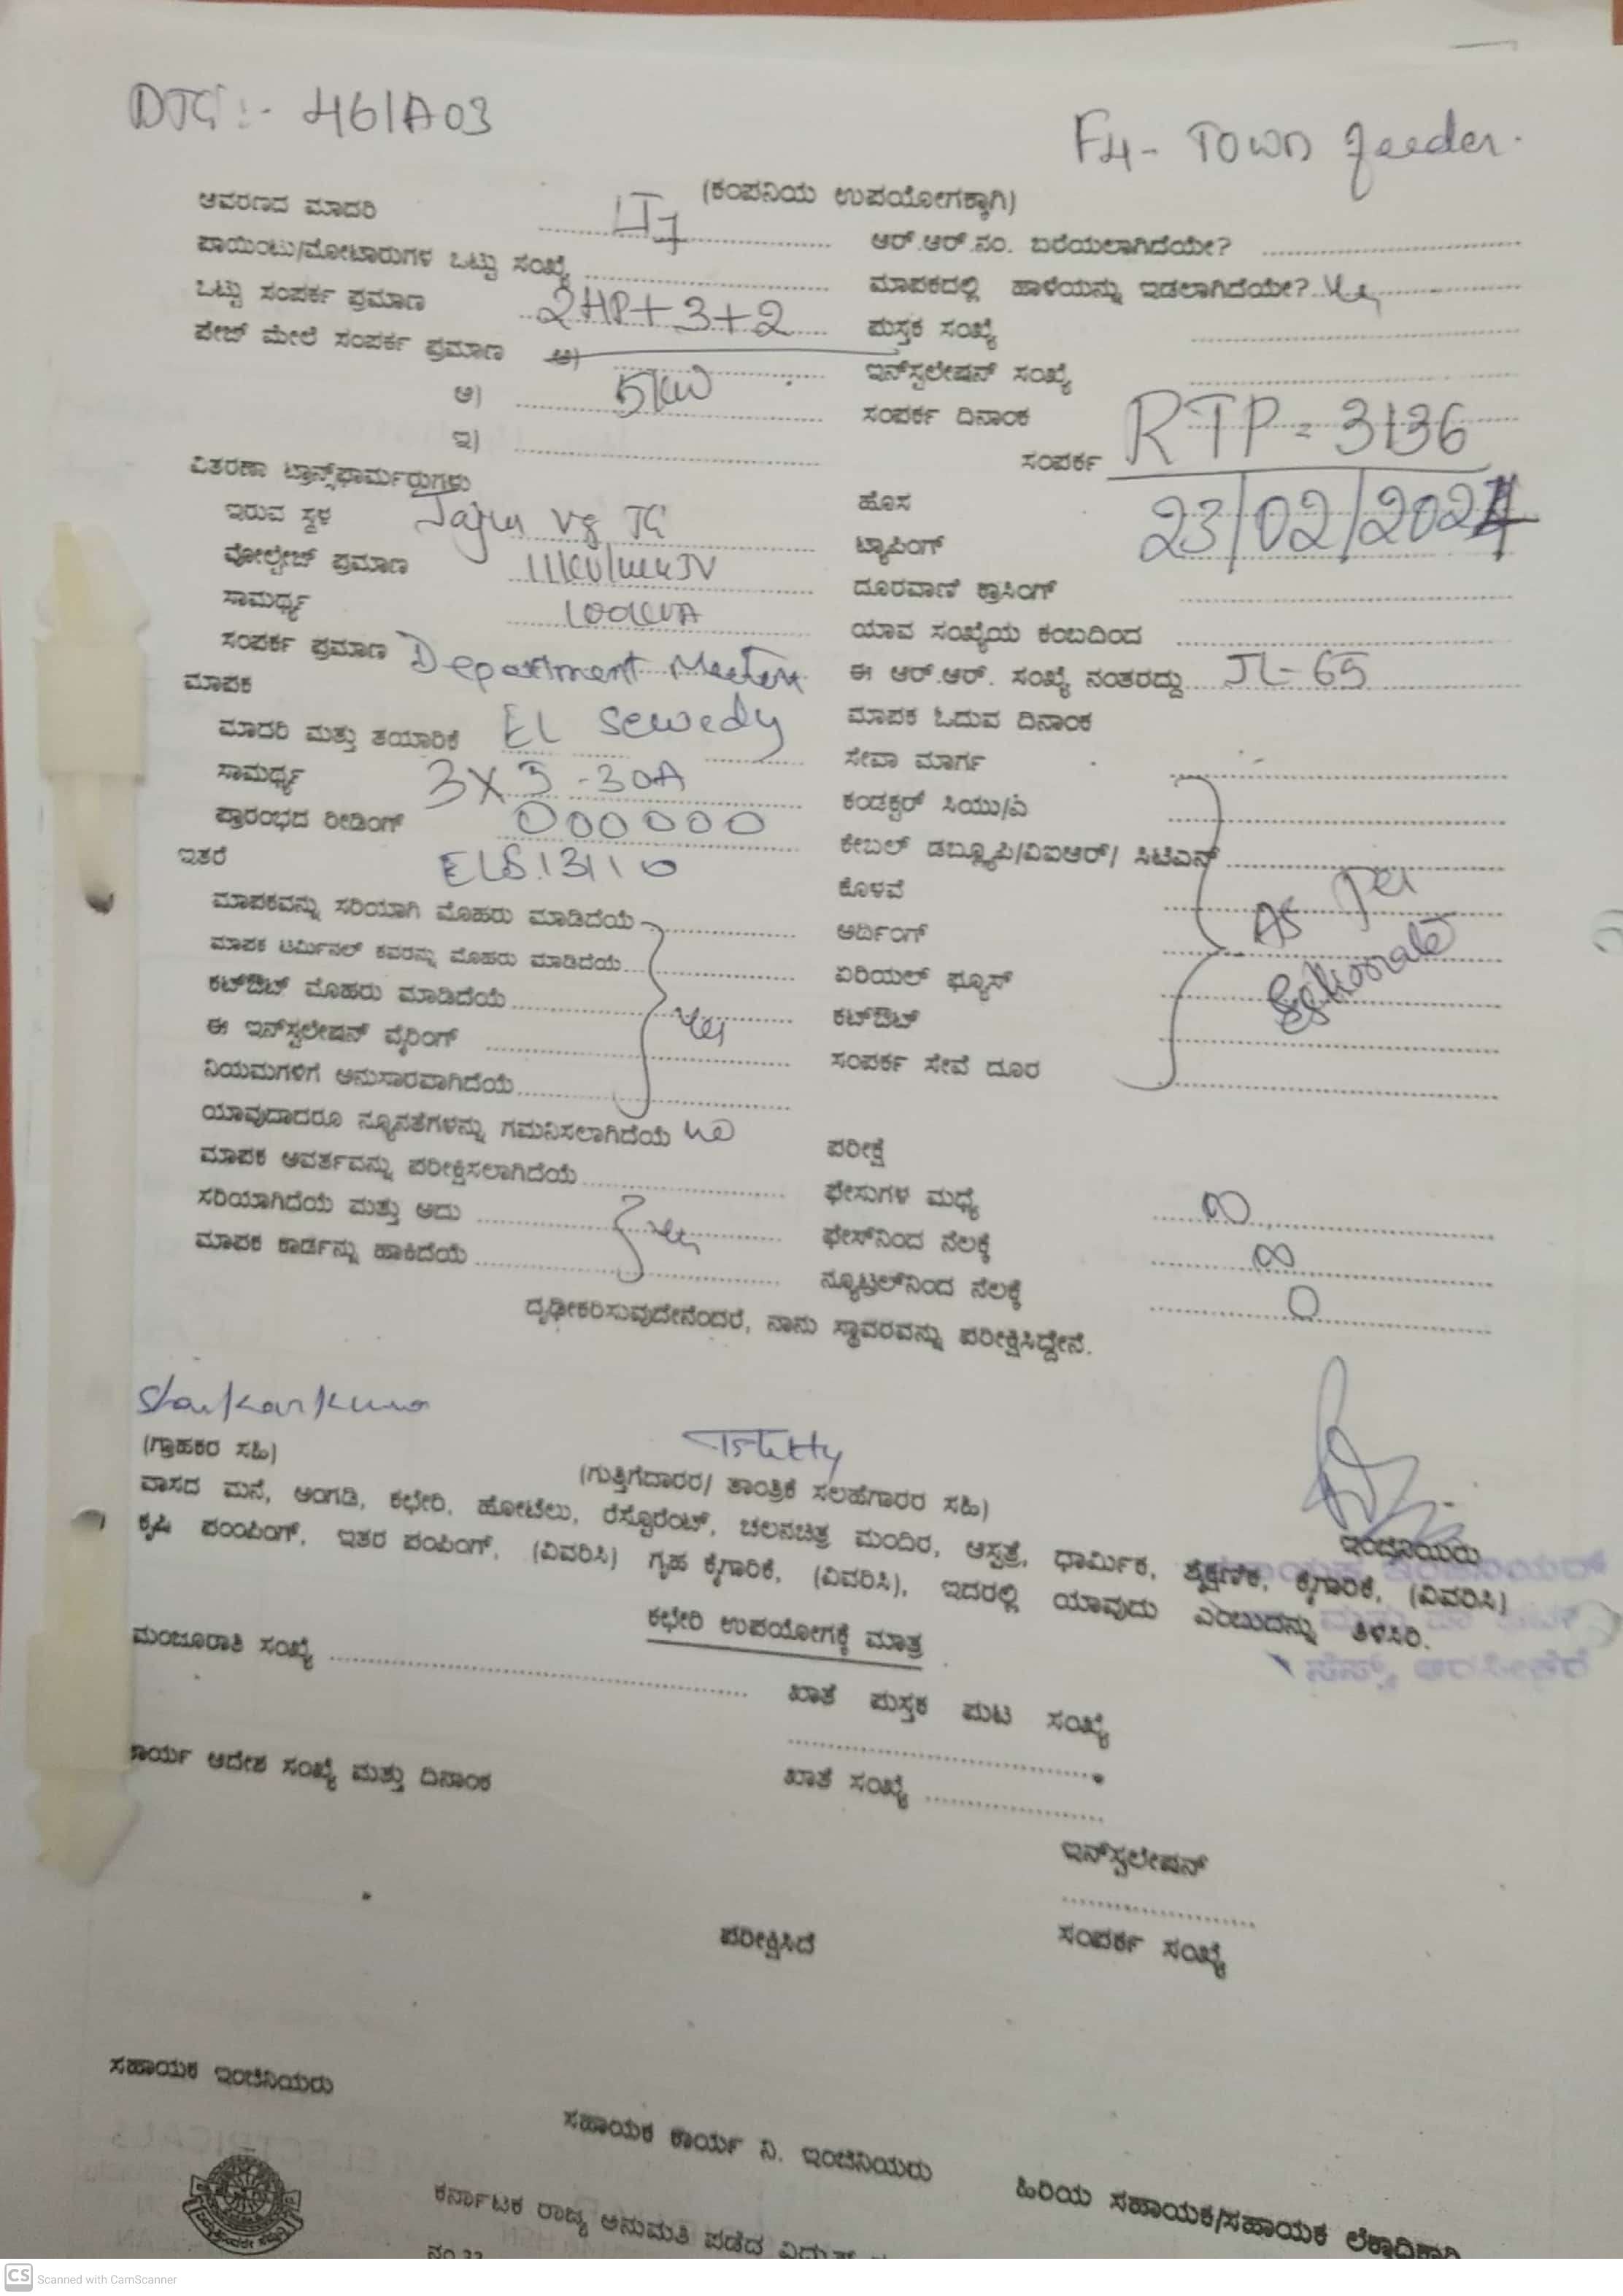 DTC :- 461A03
F4 - Town feeder.
(ಕಂಪನಿಯ ಉಪಯೋಗಕ್ಕಾಗಿ)
ಆವರಣದ ಮಾದರಿ
ಪಾಯಿಂಟು/ಮೋಟಾರುಗಳ ಒಟ್ಟು ಸಂಖ್ಯೆ
ಒಟ್ಟು ಸಂಪರ್ಕ ಪ್ರಮಾಣ 2HP+3+2
ಪೇಜ್ ಮೇಲೆ ಸಂಪರ್ಕ ಪ್ರಮಾಣ ಅ)
ಆ) 5KW
ಇ)
ವಿತರಣಾ ಟ್ರಾನ್ಸ್‌ಫಾರ್ಮರುಗಳು
ಇರುವ ಸ್ಥಳ Jajur Vg TC
ವೋಲ್ಟೇಜ್ ಪ್ರಮಾಣ
ಸಾಮರ್ಥ್ಯ 100KVA
ಸಂಪರ್ಕ ಪ್ರಮಾಣ Department Meter
ಮಾಪಕ
ಮಾದರಿ ಮತ್ತು ತಯಾರಿಕೆ EL Sewedy
ಸಾಮರ್ಥ್ಯ 3X5-30A
ಪ್ರಾರಂಭದ ರೀಡಿಂಗ್ 000000
ಇತರೆ ELS.13110
ಮಾಪಕವನ್ನು ಸರಿಯಾಗಿ ಮೊಹರು ಮಾಡಿದೆಯೆ
ಮಾಪಕ ಟರ್ಮಿನಲ್ ಕವರನ್ನು ಮೊಹರು ಮಾಡಿದೆಯೆ
ಕಟ್‌ಔಟ್ ಮೊಹರು ಮಾಡಿದೆಯೆ yes
ಈ ಇನ್‌ಸ್ಟಲೇಷನ್ ವೈರಿಂಗ್
ನಿಯಮಗಳಿಗೆ ಅನುಸಾರವಾಗಿದೆಯೆ
ಯಾವುದಾದರೂ ನ್ಯೂನತೆಗಳನ್ನು ಗಮನಿಸಲಾಗಿದೆಯೆ no
ಮಾಪಕ ಆವರ್ತವನ್ನು ಪರೀಕ್ಷಿಸಲಾಗಿದೆಯೆ
ಸರಿಯಾಗಿದೆಯೆ ಮತ್ತು ಅದು yes
ಮಾಪಕ ಕಾರ್ಡನ್ನು ಹಾಕಿದೆಯೆ
ಆರ್.ಆರ್.ನಂ. ಬರೆಯಲಾಗಿದೆಯೇ?
ಮಾಪಕದಲ್ಲಿ ಹಾಳೆಯನ್ನು ಇಡಲಾಗಿದೆಯೇ? yes
ಪುಸ್ತಕ ಸಂಖ್ಯೆ
ಇನ್‌ಸ್ಟಲೇಷನ್ ಸಂಖ್ಯೆ
ಸಂಪರ್ಕ ದಿನಾಂಕ
ಸಂಪರ್ಕ RTP = 3136
ಹೊಸ
ಟ್ಯಾಪಿಂಗ್ 23/02/2024
ದೂರವಾಣಿ ಕ್ರಾಸಿಂಗ್
ಯಾವ ಸಂಖ್ಯೆಯ ಕಂಬದಿಂದ
ಈ ಆರ್.ಆರ್. ಸಂಖ್ಯೆ ನಂತರದ್ದು JL-65
ಮಾಪಕ ಓದುವ ದಿನಾಂಕ
ಸೇವಾ ಮಾರ್ಗ
ಕಂಡಕ್ಟರ್ ಸಿಯು/ಏ
ಕೇಬಲ್ ಡಬ್ಲ್ಯೂಪಿ/ವಿಐಆರ್/ ಸಿಟಿಎಸ್
ಕೊಳವೆ
ಅರ್ಥಿಂಗ್ As per
ಏರಿಯಲ್ ಫ್ಯೂಸ್
ಕಟ್‌ಔಟ್
ಸಂಪರ್ಕ ಸೇವೆ ದೂರ
ಪರೀಕ್ಷೆ
ಫೇಸುಗಳ ಮಧ್ಯೆ ∞
ಫೇಸ್‌ನಿಂದ ನೆಲಕ್ಕೆ ∞
ನ್ಯೂಟ್ರಲ್‌ನಿಂದ ನೆಲಕ್ಕೆ 0
ದೃಢೀಕರಿಸುವುದೇನೆಂದರೆ, ನಾನು ಸ್ಥಾವರವನ್ನು ಪರೀಕ್ಷಿಸಿದ್ದೇನೆ.
(ಗ್ರಾಹಕರ ಸಹಿ)
(ಗುತ್ತಿಗೆದಾರರ/ ತಾಂತ್ರಿಕ ಸಲಹೆಗಾರರ ಸಹಿ)
ಇಂಜಿನಿಯರು
ವಾಸದ ಮನೆ, ಅಂಗಡಿ, ಕಛೇರಿ, ಹೋಟೆಲು, ರೆಸ್ಟೊರೆಂಟ್, ಚಲನಚಿತ್ರ ಮಂದಿರ, ಆಸ್ಪತ್ರೆ, ಧಾರ್ಮಿಕ, ಶೈಕ್ಷಣಿಕ, ಕೈಗಾರಿಕೆ, (ವಿವರಿಸಿ)
ಕೃಷಿ ಪಂಪಿಂಗ್, ಇತರ ಪಂಪಿಂಗ್, (ವಿವರಿಸಿ) ಗೃಹ ಕೈಗಾರಿಕೆ, (ವಿವರಿಸಿ), ಇದರಲ್ಲಿ ಯಾವುದು ಎಂಬುದನ್ನು ತಿಳಿಸಿರಿ.
ಕಛೇರಿ ಉಪಯೋಗಕ್ಕೆ ಮಾತ್ರ
ಮಂಜೂರಾತಿ ಸಂಖ್ಯೆ
ಖಾತೆ ಪುಸ್ತಕ ಪುಟ ಸಂಖ್ಯೆ
ಕಾರ್ಯ ಆದೇಶ ಸಂಖ್ಯೆ ಮತ್ತು ದಿನಾಂಕ
ಖಾತೆ ಸಂಖ್ಯೆ
ಇನ್‌ಸ್ಟಲೇಷನ್
ಪರೀಕ್ಷಿಸಿದೆ
ಸಂಪರ್ಕ ಸಂಖ್ಯೆ
ಸಹಾಯಕ ಇಂಜಿನಿಯರು
ಸಹಾಯಕ ಕಾರ್ಯ ನಿ. ಇಂಜಿನಿಯರು
ಹಿರಿಯ ಸಹಾಯಕ/ಸಹಾಯಕ ಲೆಕ್ಕಾಧಿಕಾರಿ
ಕರ್ನಾಟಕ ರಾಜ್ಯ ಅನುಮತಿ ಪಡೆದ ವಿದ್ಯುತ್
CS Scanned with CamScanner